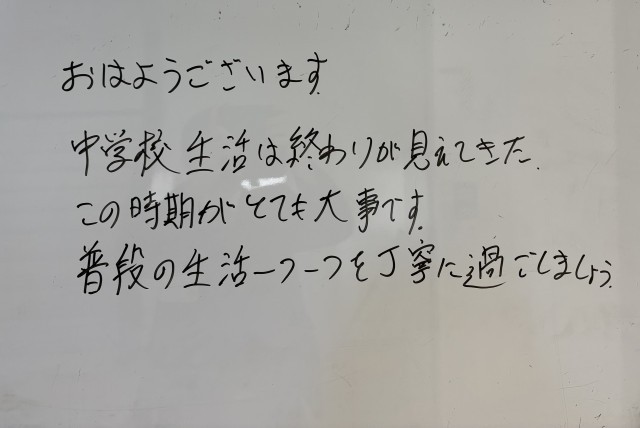 おはようございます.
中学校生活は終わりが見えてきた.
この時期がとても大事です.
普段の生活一つ一つを丁寧に過ごしましょう.